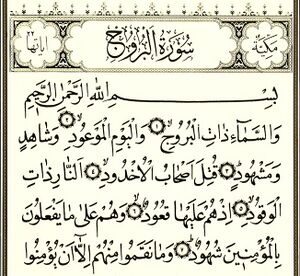 مكية سورة البروج آياتها ٢٢
بِسْمِ اللَّهِ الرَّحْمَٰنِ الرَّحِيمِ
وَالسَّمَاءِ ذَاتِ الْبُرُوجِ ١ وَالْيَوْمِ الْمَوْعُودِ ٢ وَشَاهِدٍ
وَمَشْهُودٍ ٣ قُتِلَ أَصْحَابُ الْأُخْدُودِ ٤ النَّارِ ذَاتِ
الْوَقُودِ ٥ إِذْ هُمْ عَلَيْهَا قُعُودٌ ٦ وَهُمْ عَلَىٰ مَا يَفْعَلُونَ
بِالْمُؤْمِنِينَ شُهُودٌ ٧ وَمَا نَقَمُوا مِنْهُمْ إِلَّا أَنْ يُؤْمِنُوا